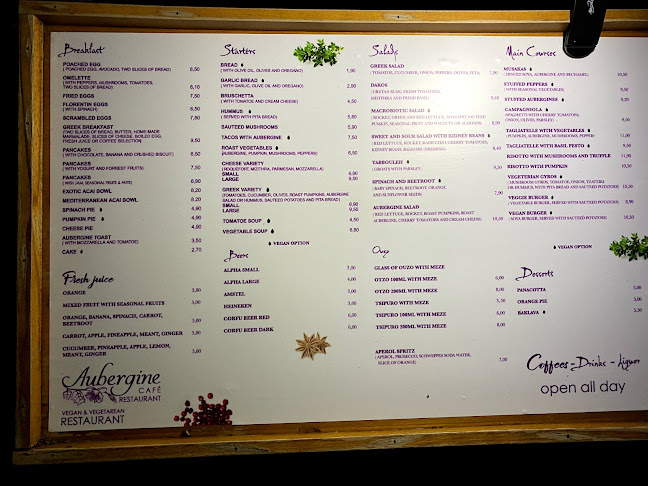 Breakfast
POACHED EGG
( POACHED EGG, AVOCADO, TWO SLICES OF BREAD) 8,50
OMELETTE
(WITH PEPPERS, MUSHROOMS, TOMATOES,
TWO SLICES OF BREAD) 8,10
FRIED EGGS 7,50
FLORENTIN EGGS
(WITH SPINACH) 8,50
SCRAMBLED EGGS 7,80
GREEK BREAKFAST
(TWO SLICES OF BREAD, BUTTER, HOME-MADE
MARMALADE, SLICES OF CHEESE, BOILED EGG,
FRESH JUICE OR COFFEE SELECTION) 9,50
PANCAKES
( WITH CHOCOLATE, BANANA AND CRUSHED BISCUIT) 6,50
PANCAKES
( WITH YOGURT AND FORREST FRUITS) 7,50
PANCAKES
( WITH JAM, SEASONAL FRUITS & NUTS) 6,90
EXOTIC ACAI BOWL 8,20
MEDITERRANEAN ACAI BOWL 8,20
SPINACH PIE 4,90
PUMPKIN PIE 4,90
CHEESE PIE 4,90
AUBERGINE TOAST
( WITH MOZZARELLA AND TOMATOE) 3,50
CAKE 2,70
Fresh juice
ORANGE 3,80
MIXED FRUIT WITH SEASONAL FRUITS 5,00
ORANGE, BANANA, SPINACH, CARROT,
BEETROOT 5,00
CARROT, APPLE, PINEAPPLE, MEANT, GINGER 5,80
CUCUMBER, PINEAPPLE, APPLE, LEMON,
MEANT, GINGER 5,80
Aubergine
CAFÉ
RESTAURANT
VEGAN & VEGETARTAN
RESTAURANT
Starters
BREAD
( WITH OLIVE OIL, OLIVES AND OREGANO) 1,90
GARLIC BREAD
( WITH GARLIC, OLIVE OIL AND OREGANO) 2,00
BRUSCHETTA
( WITH TOMATOE AND CREAM CHEESE) 4,50
HUMMUS
( SERVED WITH PITA BREAD) 5,80
SAUTEED MUSHROOMS 5,90
TACOS WITH AUBERGINE 7,50
ROAST VEGETABLES
(AUBERGINE, PUMPKIN, MUSHROOMS, PEPPERS) 6,50
CHEESE VARIETY
( ROQUEFORE, MEZITHRA, PARMESAN, MOZZARELLA)
SMALL 8,90
LARGE 9,50
GREEK VARIETY
(TOMATOES, CUCUMBER, OLIVES, ROAST PUMPKINS, AUBERGINE
SALAD OR HUMMUS, SAUTEED POTATOES AND PITA BREAD)
SMALL 6,90
LARGE 9,50
TOMATOE SOUP 4,50
VEGETABLE SOUP 6,80
VEGAN OPTION
Beers
ALPHA SMALL 3,00
ALPHA LARGE 4,00
AMSTEL 3,00
HEINEKEN 3,00
CORFU BEER RED 6,00
CORFU BEER DARK 6,00
Salads
GREEK SALAD
( TOMATOE, CUCUMBER, ONION, PEPPERS, OLIVES, FETA) 7,90
DAKOS
( CRETAN RUSK, FRESH TOMATOES,
MEZITHRA AND FRESH BASIL)
MACROBIOTIC SALAD
SWEET AND SOUR SALAD WITH KIDNEY BEANS
TABBOULEH
( GROATS WITH PARSLEY)
SPINACH AND BEETROOT
( BABY SPINACH, BEETROOT, ORANGE
AND SUNFLOWER SEEDS)
AUBERGINE SALAD
( RED LETTUCE, ROCKET, ROAST PUMPKINS, ROAST
AUBERGINE, CHERRY TOMATOES AND CREAM CHEESE)
Ouzo
GLASS OF OUZO WITH MEZE
OYZO 100ML WITH MEZE 6,00
OYZO 200ML WITH MEZE 8,00
TSIPURO WITH MEZE 3,50
TSIPURO 100ML WITH MEZE 6,00
TSIPURO 200ML WITH MEZE 8,00
APEROL SPRITZ
( APEROL, PROSECCO, SCHWEPPES SODA WATER,
SLICE OF ORANGE) 7,00
Main Courses
MUSAKAS
( MINCED SOYA, AUBERGINE AND BECHAMEL) 10,50
STUFFED PEPPERS
( WITH SEASONAL VEGETABLES) 9,50
STUFFED AUBERGINES 9,20
CAMPAGNIOLA
( SPAGHETTI WITH CHERRY TOMATOES,
ONION, OLIVES, PARSLEY)
TAGLIATELLE WITH VEGETABLES
( PUMPKIN, AUBERGINE, MUSHROOMS, PEPPERS) 11,00
TAGLIATELLE WITH BASIL PESTO 9,50
RISOTTO WITH MUSHROOMS AND TRUFFLE 11,90
RISOTTO WITH PUMPKIN 10,50
VEGETERIAN GYROS
( MUSHROOM GYROS, TOMATOE, ONION, TZATZIKI
OR HUMMUS, WITH PITA BREAD AND SAUTEED POTATOES) 10,50
VEGGIE BURGER
( VEGETABLE BURGER, SERVED WITH SAUTEED POTATOES) 10,50
VEGAN BURGER
( SOYA BURGER, SERVED WITH SAUTEED POTATOES) 10,50
VEGAN OPTION
Desserts
PANACOTTA 5,00
ORANGE PIE 5,00
BAKLAVA 5,00
Coffees - Drinks - liquor
open all day